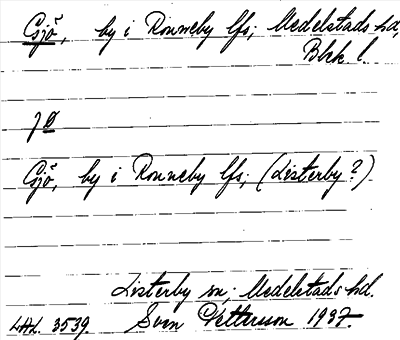 Gsjö, by i Ronneby lfs; Medelstads hd,
Blek l.
jø
Gsjö, by i Ronneby lfs; (Listerby?)
Listerby sn; Medelstads hd.
LAL. 3539. Sven Pettersson 1937.